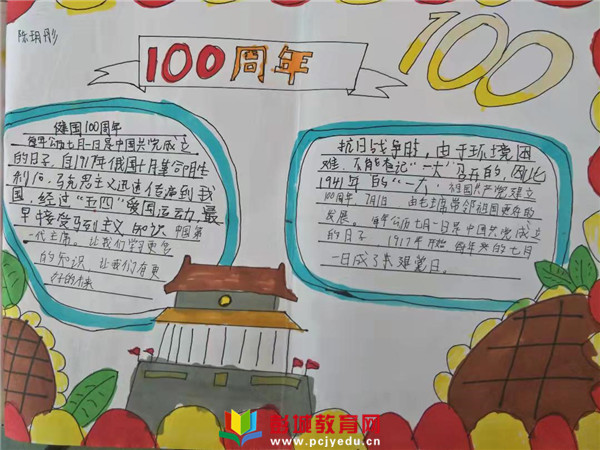 陈玥彤
100周年
100
健国100周年
每年公历七月一日是中国共党成立
的日子。自1917年俄国十月革命胜
利后,马克思主义迅速传番到我
国,经过“五四”爱国运动,最
早接受马列主义知识 中国第
一代主席。让我们学更多
的知识,让我们有更
好的未
抗日战争时,由于环境困
难,不能
1941年的“一大”,祖国共产党建立
100周年,7月1日 由毛主席带邻祖国更好的
发展。每年公历七月一日是中国共党成立
的日子。1917年开始 每年来的七月
一日成了来难党日。
彭城教育网
www.pcjyedu.cn